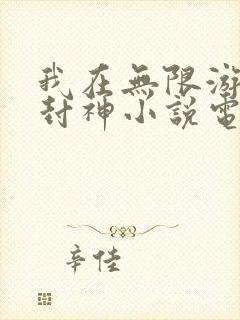 我在無限游
封神小說電
辛佳